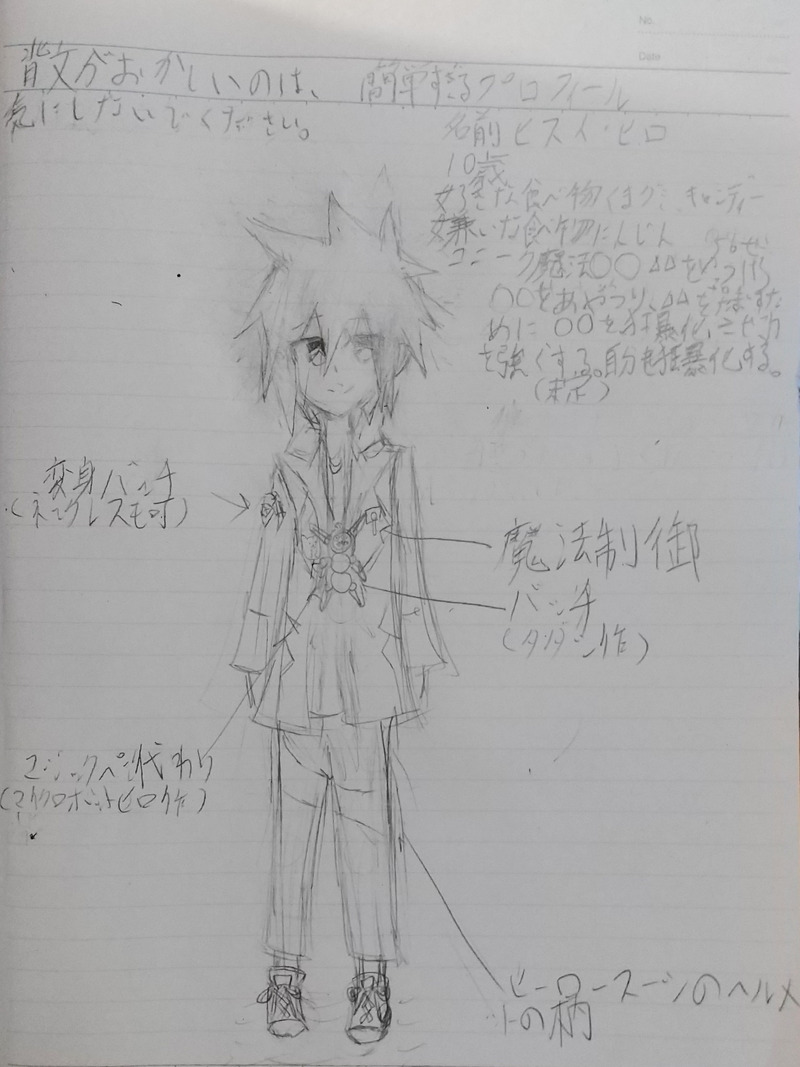 No.
Date
背文がおかしいのは、
気にしないでください。
簡単すぎるプロフィール
名前 ヒスイ・ヒロ
10歳
好きな食べ物くまグミ キャンディー
嫌いな食べ物にんじん
ユニーク魔法〇〇△△を
〇〇をあやつり、△△を
めに〇〇を狂暴化、
を強くする。自分も狂暴化する。
(未定)
変身バッチ
(ネックレスも可)
魔法制御
バッチ
マジックペン代わり
ヒーロースーツのヘルメッ
トの柄